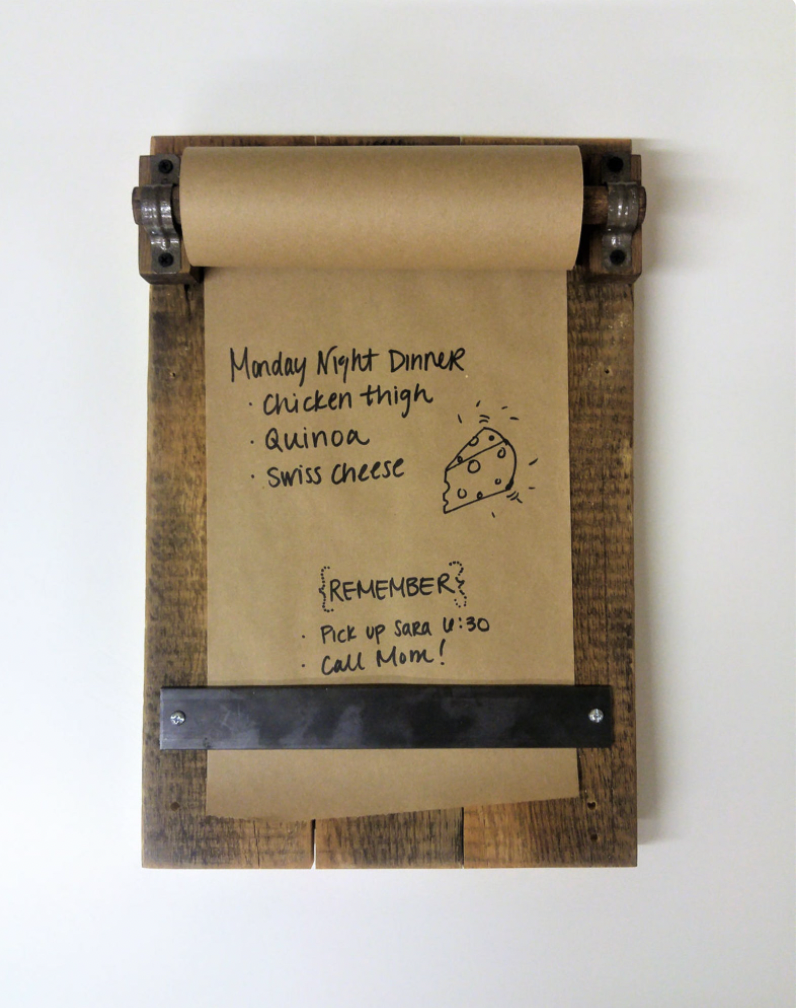 Monday Night Dinner
· Chicken thigh
· Quinoa
· Swiss Cheese
{REMEMBER}
· Pick up Sara 6:30
· Call Mom!